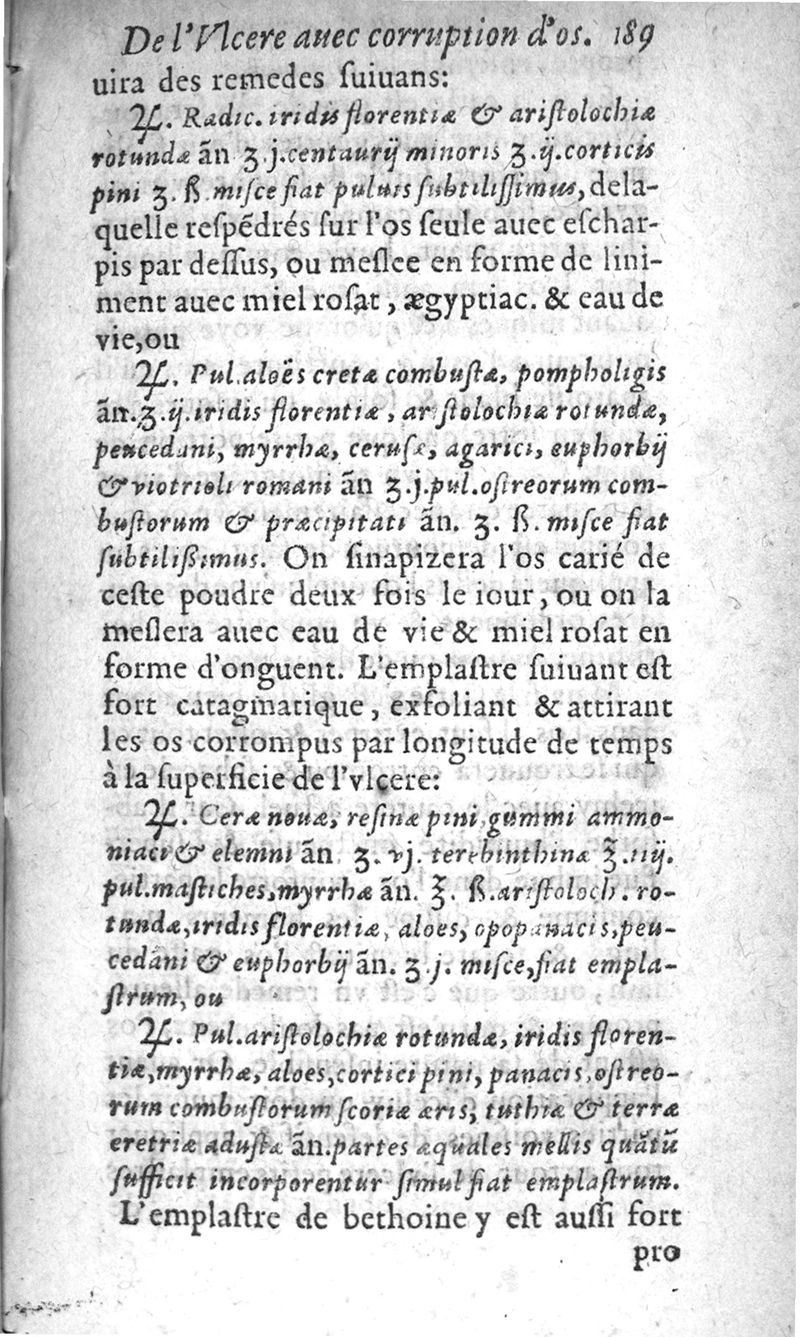 De l'Vlcere auec corruption d'os. 189
uira des remedes ſuiuans:
℞. Radic. iridis florentiæ & ariſtolochiæ
rotundæ ãn ʒ.j.centaurij minoris ʒ.ij.corticis
pini ʒ.ß.miſce fiat puluis ſubtiliſſimus, dela-
quelle reſpẽdrés ſur l'os ſeule auec eſchar-
pis par deſſus, ou meſlee en forme de lini-
ment auec miel roſat, ægyptiac. & eau de
vie,ou
℞. Pul.aloës cretæ combuſtæ, pompholigis
ãn.ʒ.ij.iridis florentiæ, ar ſtolochiæ rotundæ,
peucedani, myrrhæ, ceruſæ, agarici, euphorbij
& viotrioli romani ãn ʒ.j.pul.oſtreorum com-
buſtorum & præcipitati ãn. ʒ. ß. miſce fiat
ſubtilißimus. On ſinapizera l'os carié de
ceſte poudre deux fois le iour, ou on la
meſlera auec eau de vie & miel roſat en
forme d'onguent. L'emplaſtre ſuiuant eſt
fort catagmatique, exfoliant & attirant
les os corrompus par longitude de temps
à la ſuperficie de l'vlcere:
℞. Ceræ nouæ, reſinæ pini gummi ammo-
niaci & elemni ãn ʒ. vj. terebinthinæ ℥.iij.
pul.maſtiches,myrrhæ ãn. ℥. ß.ariſtoloch. ro-
tundæ,iridis florentiæ, aloes, opopanacis,peu-
cedani & euphorbij ãn. ʒ.j. miſce,fiat empla-
ſtrum, ou
℞. Pul.ariſtolochiæ rotundæ, iridis floren-
tiæ,myrrhæ, aloes,cortici pini, panacis,oſtreo-
rum combuſtorum ſcoriæ æris, tuthiæ & terræ
eretriæ aduſtæ ãn.partes æquales mellis quãtũ
ſufficit incorporentur ſimul fiat emplaſtrum.
L'emplaſtre de bethoine y eſt auſſi fort
pro